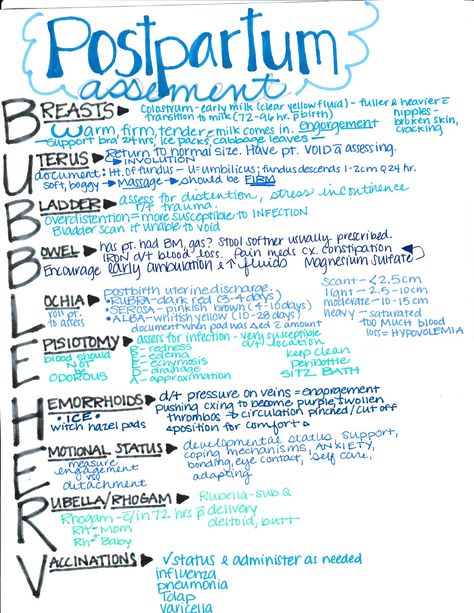 Postpartum
assement
BREASTS ▶ Colostrum - early milk (clear yellow fluid) - fuller & heavier &
transition to milk (72-96 hr. p̄ birth) nipples -
Warm, firm, tender & milk comes in. engorgement broken skin,
support bra 24 hrs, ice packs, cabbage leaves cracking
UTERUS ▶ Return to normal size. Have pt. VOID ā assessing.
INVOLUTION
document: Ht. of fundus - U=umbilicus; fundus descends 1-2cm q 24 hr.
soft, boggy → massage → should be FIRM
BLADDER ▶ assess for distention, stress incontinence
r/t trauma.
overdistention = more susceptible to INFECTION
Bladder scan if unable to void
BOWEL ▶ has pt. had BM, gas? Stool softner usually prescribed.
IRON d/t blood loss. Pain meds cx. constipation
Encourage early ambulation & ↑ fluids Magnesium sulfate
LOCHIA ▶ Postbirth uterine discharge. scant - <2.5cm
roll pt. to assess • RUBRA - dark red (3-4 days) light - 2.5-10cm
• SEROSA - pinkish brown (4-10 days) moderate - 10-15cm
• ALBA - whitish yellow (10-28 days) heavy - saturated
document when pad was Δed & amount TOO MUCH blood
loss = HYPOVOLEMIA
EPISIOTOMY ▶ assess for infection - very susceptible
d/t location
blood should NOT be ODOROUS
R - redness keep clean
E - edema peribottle
E - ecchymosis SITZ BATH
D - drainage
A - approximation
HEMORRHOIDS ▶ d/t pressure on veins = engorgement
• ICE • pushing cxing to become purple, swollen
witch hazel pads thrombos → circulation pinched/cut off
position for comfort
EMOTIONAL STATUS ▶ developmental status, support,
measure engagement vs. detachment coping mechanisms, ANXIETY,
bonding, eye contact, self care,
adapting
RUBELLA/RHOGAM ▶ Rubella - sub Q
Rhogam - c̄/in 72 hrs p̄ delivery
Rh- Mom deltoid, butt
Rh+ Baby
VACCINATIONS ▶ √ status & administer as needed
influenza
pneumonia
Tdap
varicella